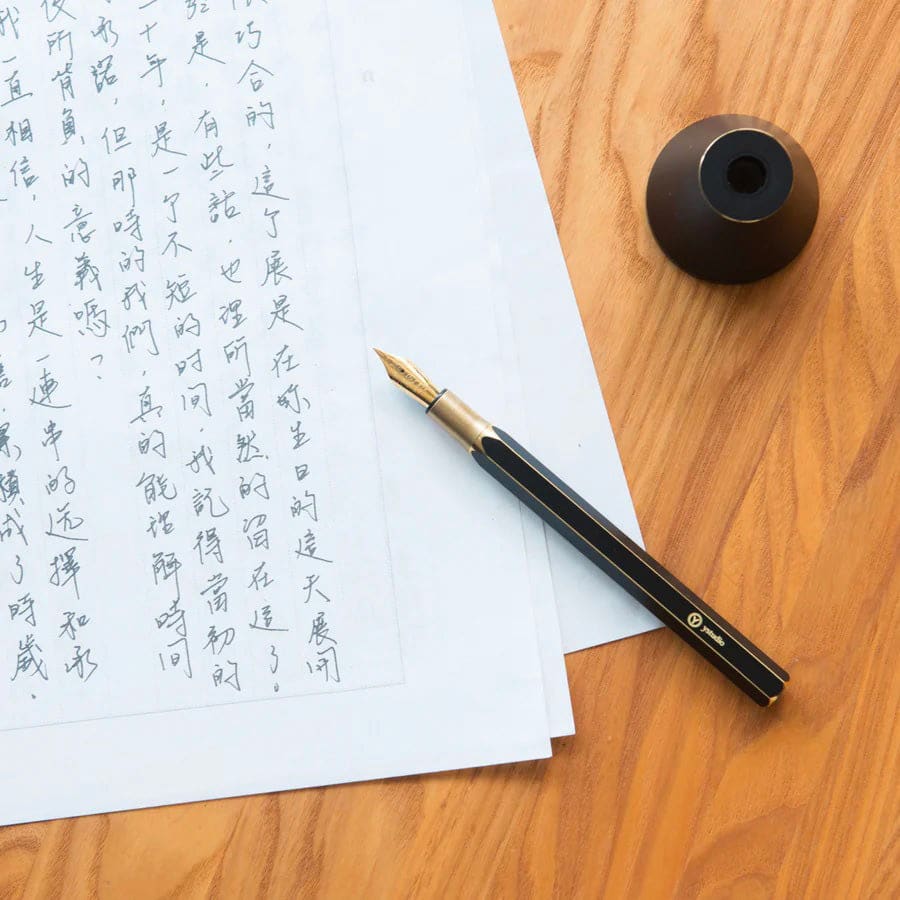 巧合的，這个展是在妳生日的這天展開
是，有些話，也理所當然的留在這了。
十年，是一个不短的时间，我記得當初的
承諾，但那時的我們，真的能理解時间
後所背負的意義嗎？
我一直相信，人生是一連串的选擇和承
累積成了時歲，
ystudio